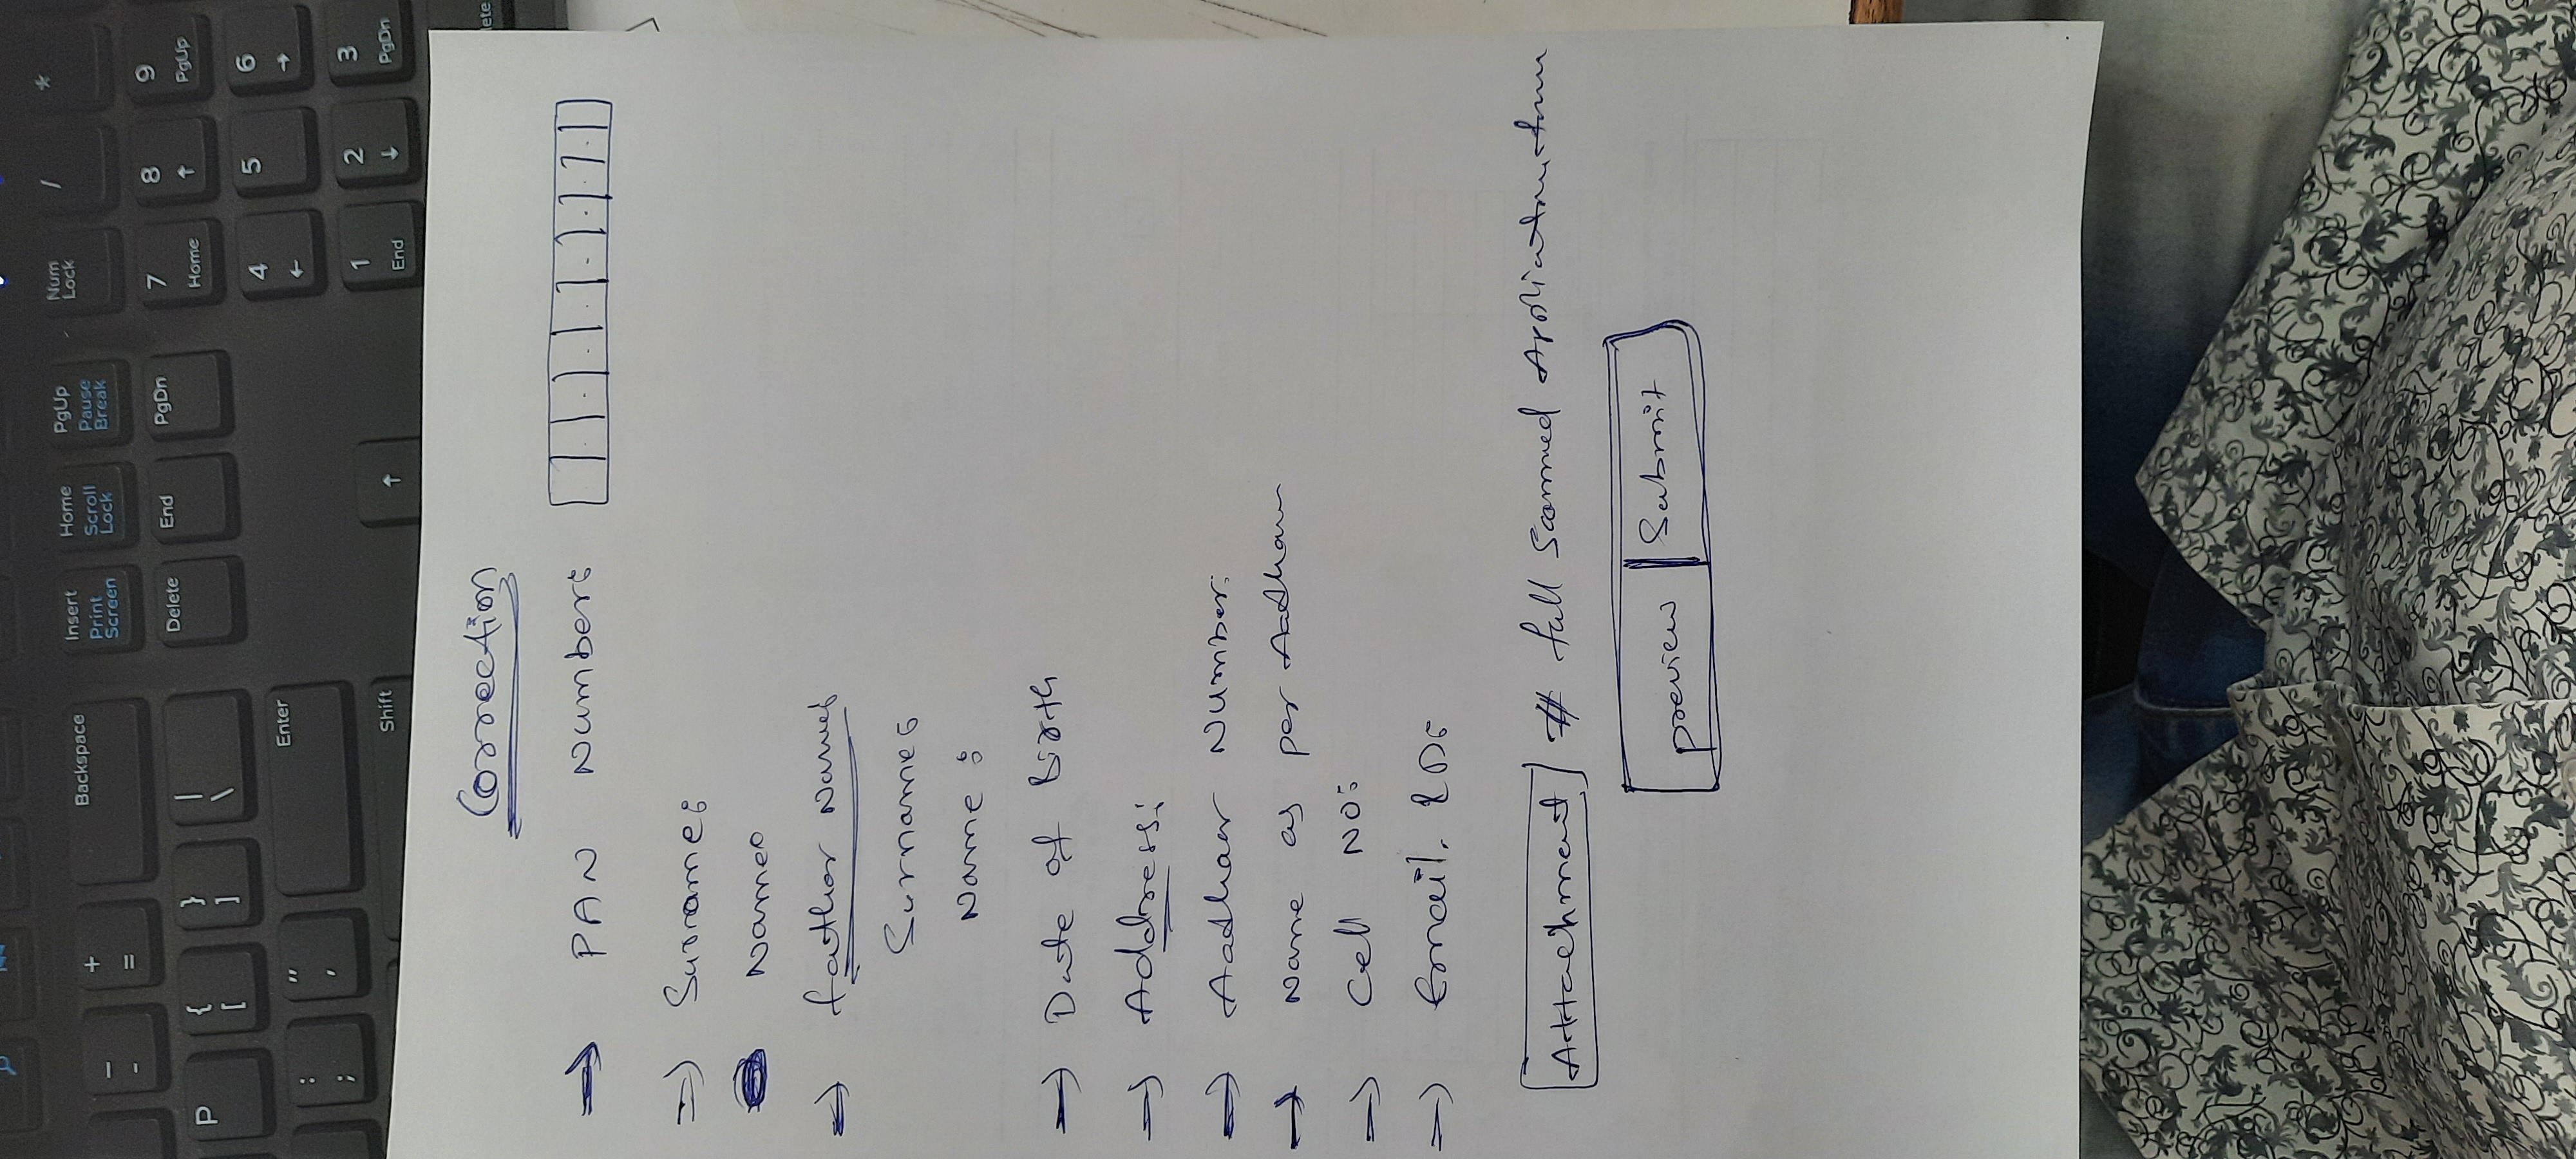 Backspace
Insert
Print Screen
Home
Scroll Lock
PgUp
Pause Break
Num Lock
/
*
_ -
+ =
P
{ [
} ]
| \
Delete
End
PgDn
7 Home
8 ↑
9 PgUp
: ;
" '
Enter
4 ←
5
6 →
Shift
↑
1 End
2 ↓
3 PgDn
lete
Correction
⇒ PAN Number:
⇒ Surname:
Name:
⇒ father Name:
Surname:
Name :
⇒ Date of Birth
⇒ Address:
⇒ Aadhaar Number:
→ Name as per Aadhaar
⇒ Cell NO:
⇒ Email. ID:
Attachment # full Scanned
preview Submit